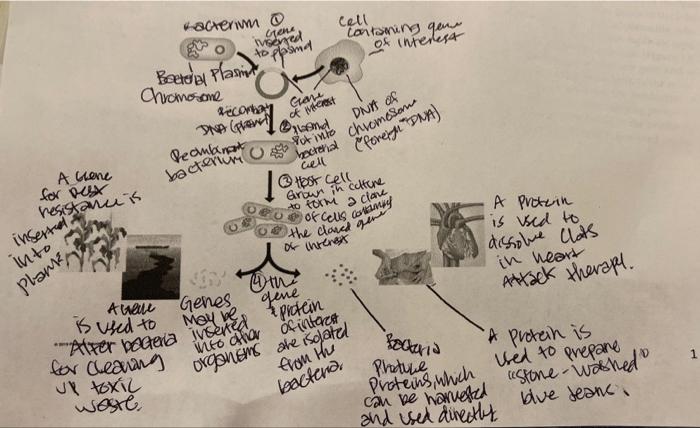 Bacterium
①
Gene
inserted
to plasmid
Cell
containing gene
of interest
Bacterial Plasmid
Chromosome
Recombat
DNA (plasmid)
Gene
of interest
DNA of
chromosome
("foreign" DNA)
② plasmid
Put into
bacterial
cell
Recombinant
bacterium
③ Host cell
Grown in culture
to form a clone
of cells containing
the cloned gene
of interest
A Gene
for pest
resistance is
inserted
into
plants
A Gene
is used to
Alter bacteria
for cleaning
up toxic
waste.
Genes
may be
inserted
into other
organisms
④ the
gene
& protein
of interest
are isolated
from the
bacteria
Bacteria
Produce
Proteins, which
can be harvested
and used directly
A Protein
is used to
dissolve clots
in heart
Attack therapy.
A Protein is
used to prepare
"stone-washed"
blue jeans.
1